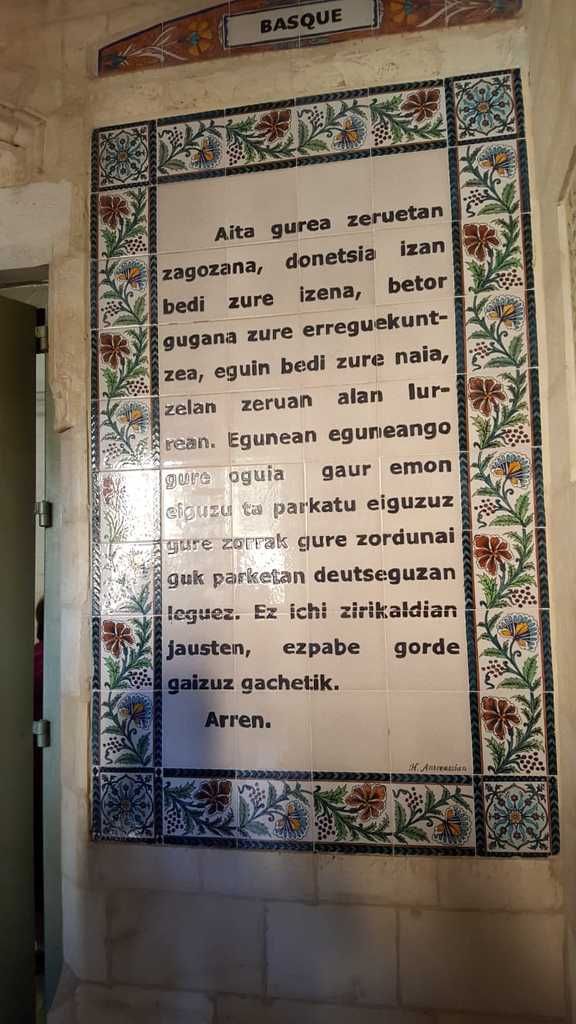 BASQUE
Aita gurea zeruetan
zagozana, donetsia izan
bedi zure izena, betor
gugana zure erreguekunt-
zea, eguin bedi zure naia,
zelan zeruan alan lur-
rean. Egunean eguneango
gure oguia gaur emon
eiguzu ta parkatu eiguzuz
gure zorrak gure zordunai
guk parketan deutseguzan
leguez. Ez ichi zirikaldian
jausten, ezpabe gorde
gaizuz gachetik.
Arren.
H. Antreassian